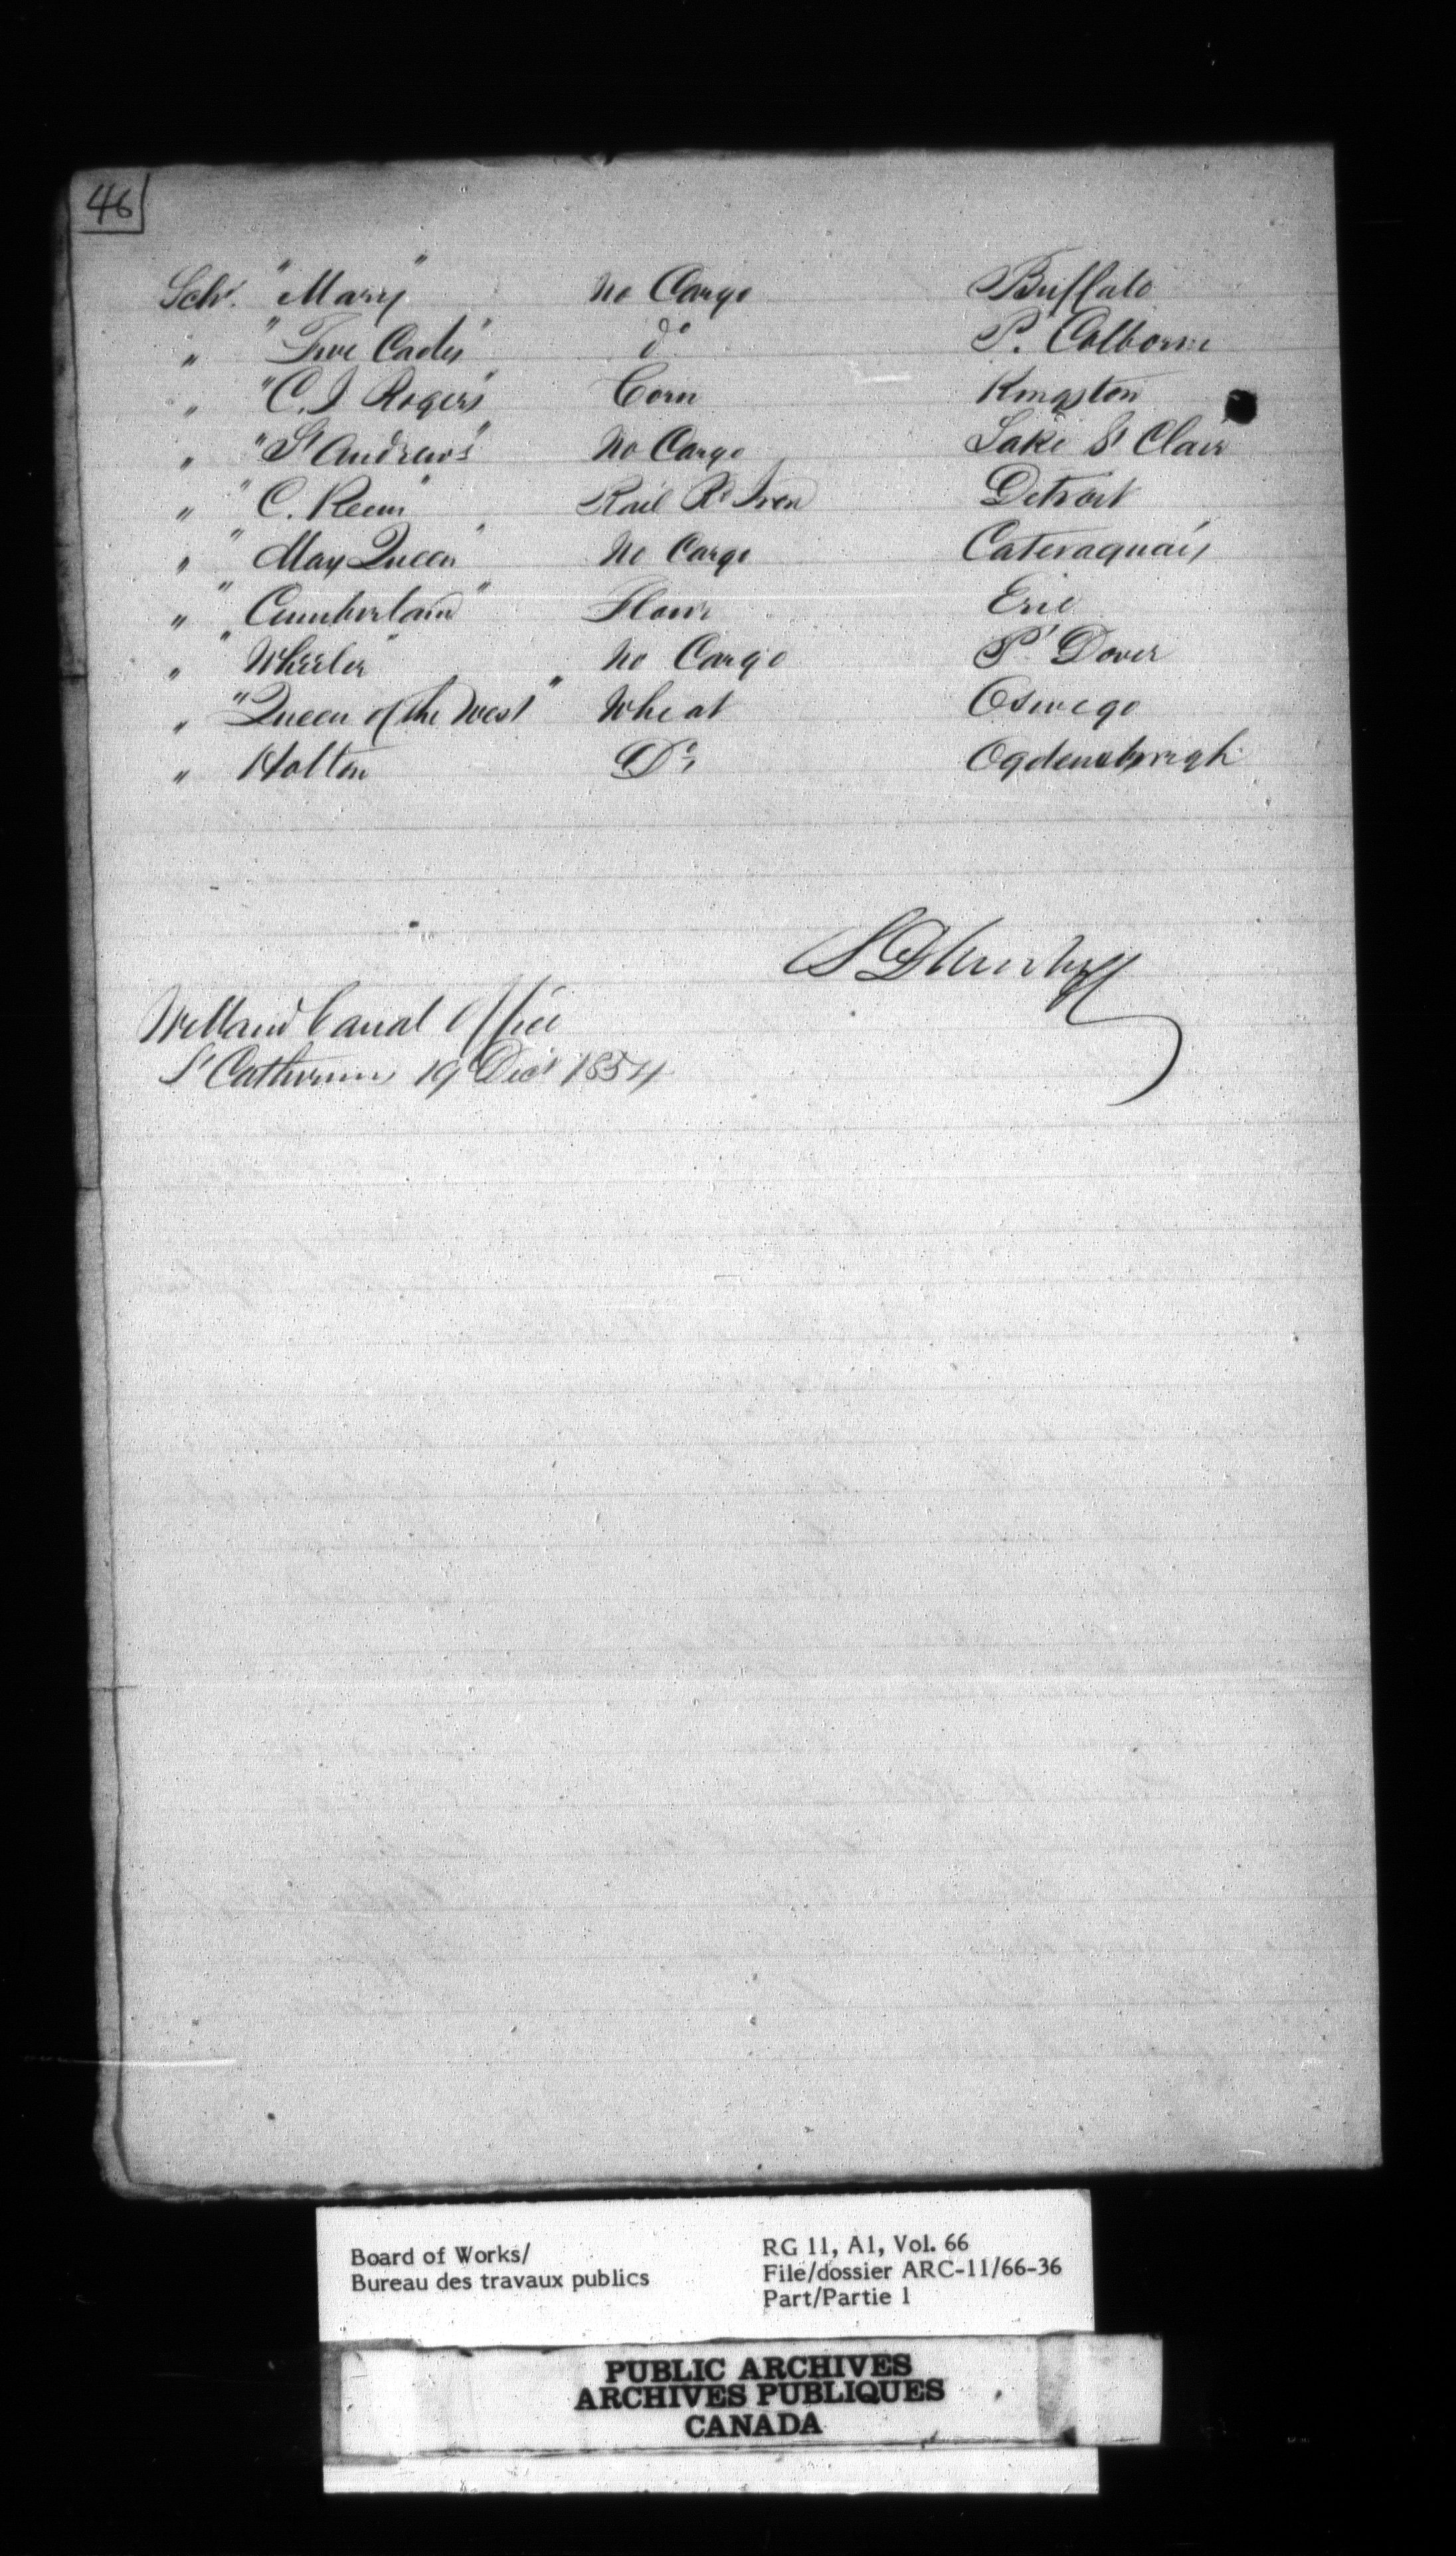 46
Schr. "Mary" No Cargo Buffalo
" " " do P. Colborne
" "C. J. Rogers" Corn Kingston
" "St Andrews" No Cargo Lake St Clair
" "C. " Rail Rd Iron Detroit
" "May Queen" No Cargo Cateraquais
" "Cumberland" Flour Erie
" "Wheeler" No Cargo Pt Dover
" "Queen of the West" Wheat Oswego
" Holton Do Ogdensbrugh
S D Woodruff
Welland Canal Office
St Catherines 19 Decr 1854
Board of Works/
Bureau des travaux publics
RG 11, A1, Vol. 66
File/dossier ARC-11/66-36
Part/Partie 1
PUBLIC ARCHIVES
ARCHIVES PUBLIQUES
CANADA